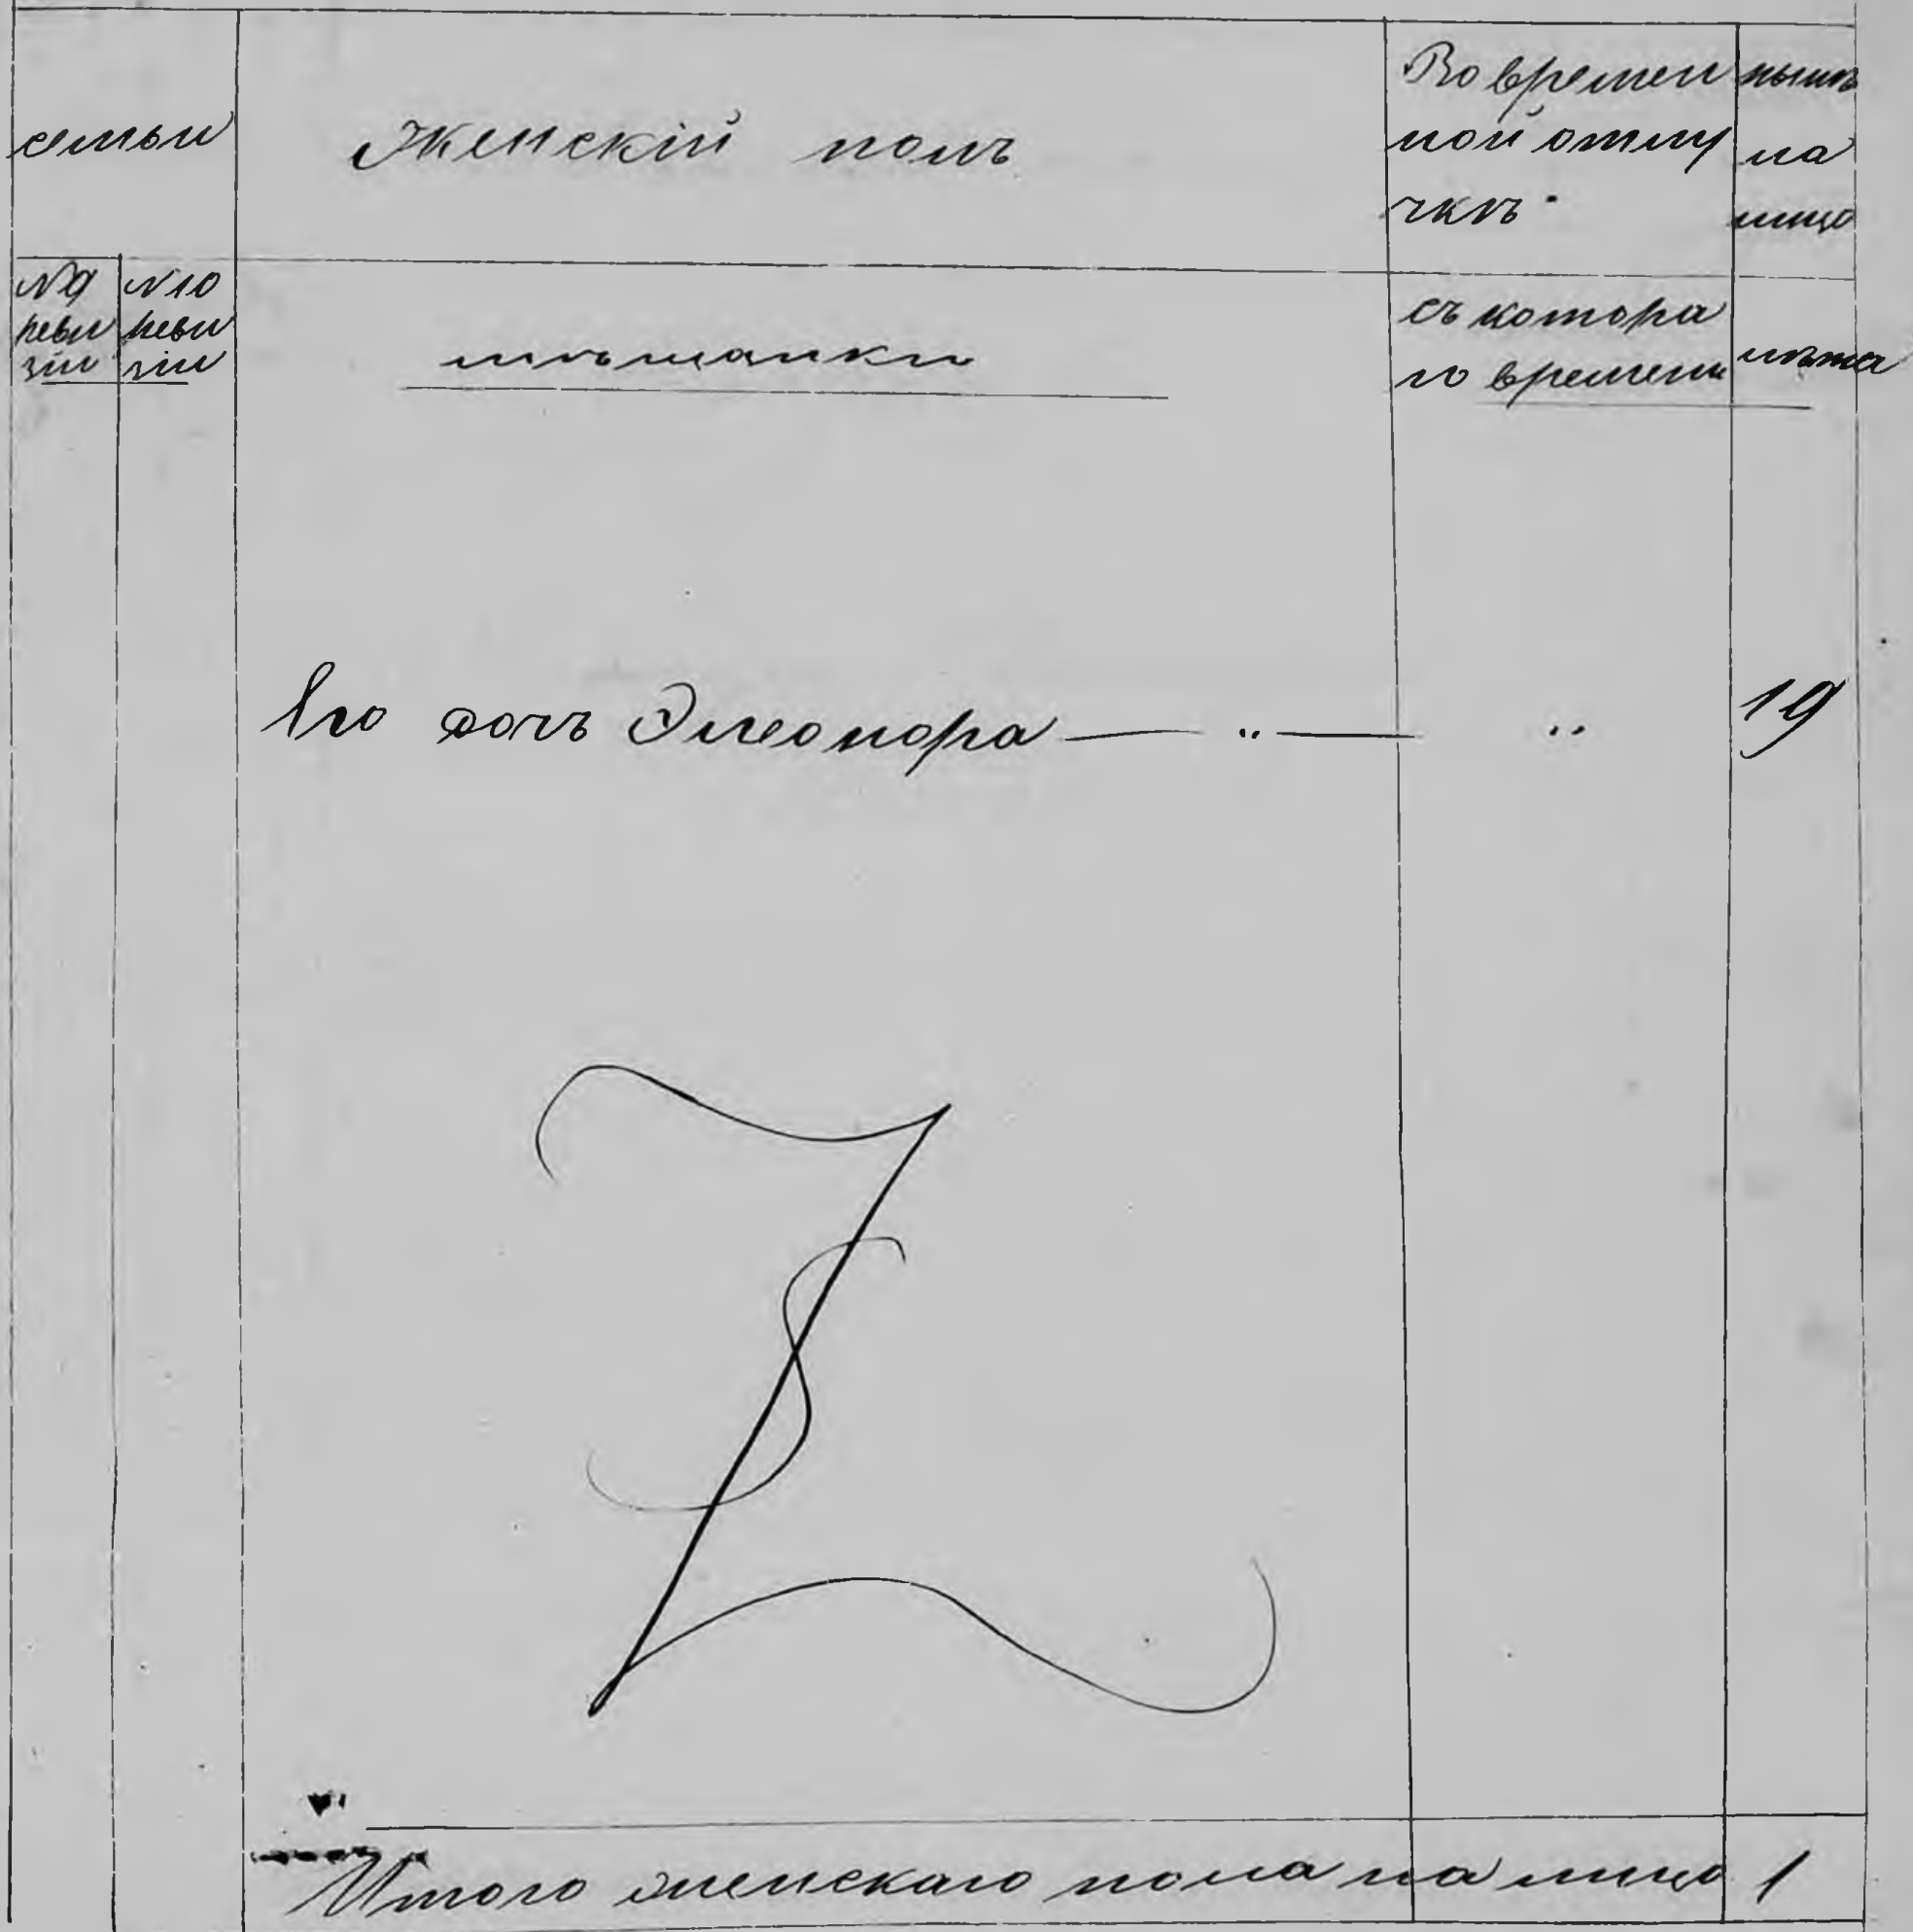 семьи
Женскій полъ
Во времен
ной отлу
чкѣ
нынѣ
на
лицо
№ 9
реви
зіи
№ 10
реви
зіи
мѣщанки
съ котора
го времени
лѣта
Его дочь Элеонора — " — " 19
Итого женскаго пола на лицо 1